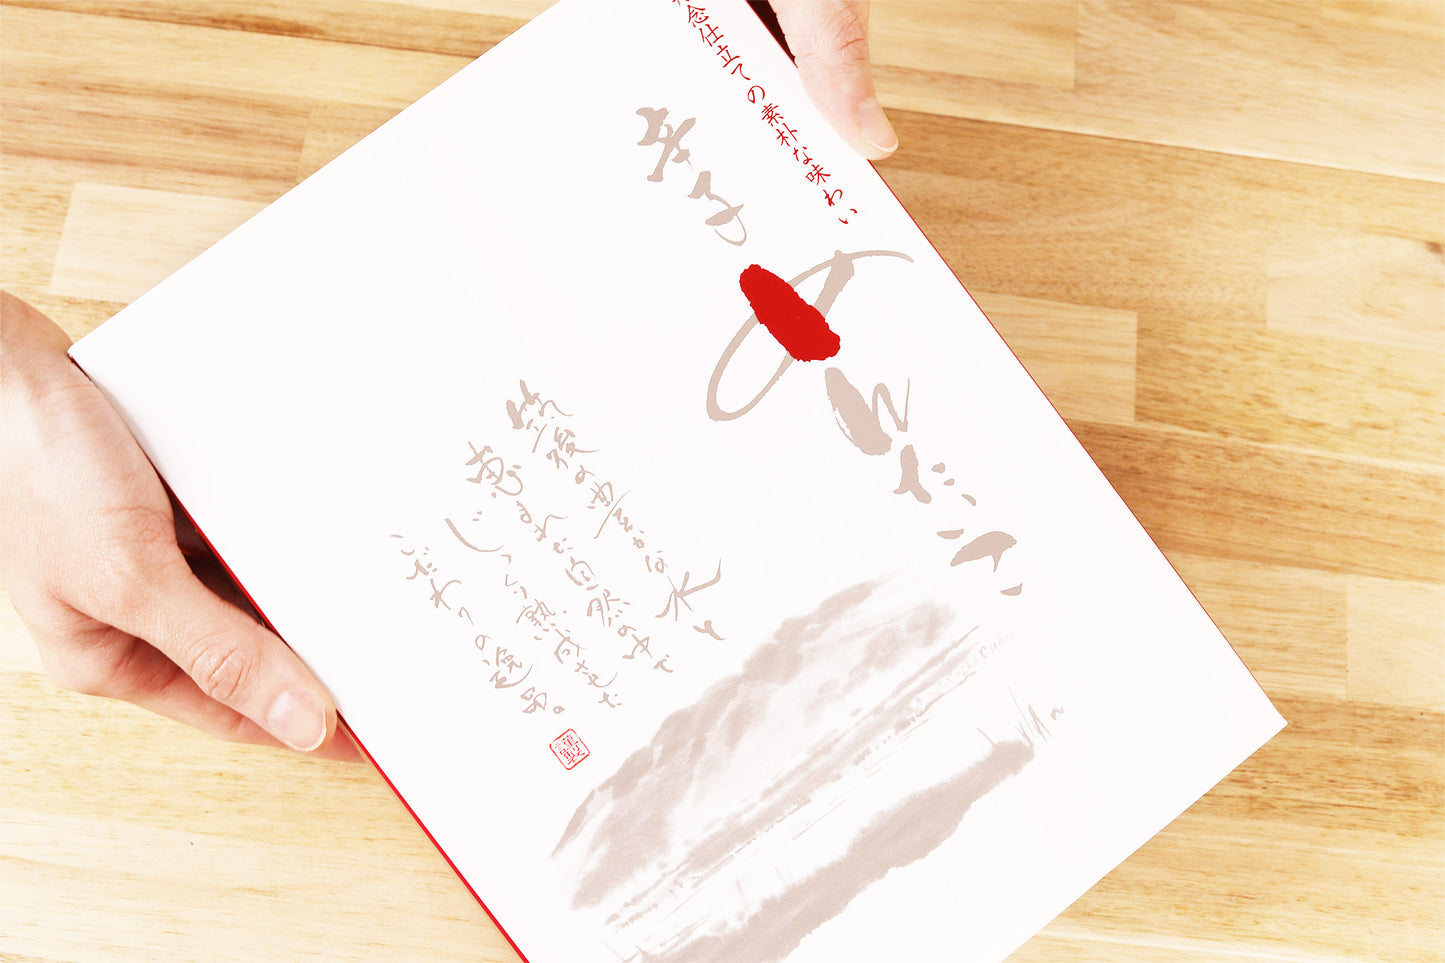 念仕立ての素朴な味わい
幸子
めんたいこ
筑後の豊かな水と
恵まれた自然の中で
じっくり熟成させた
こだわりの逸品。
謹製